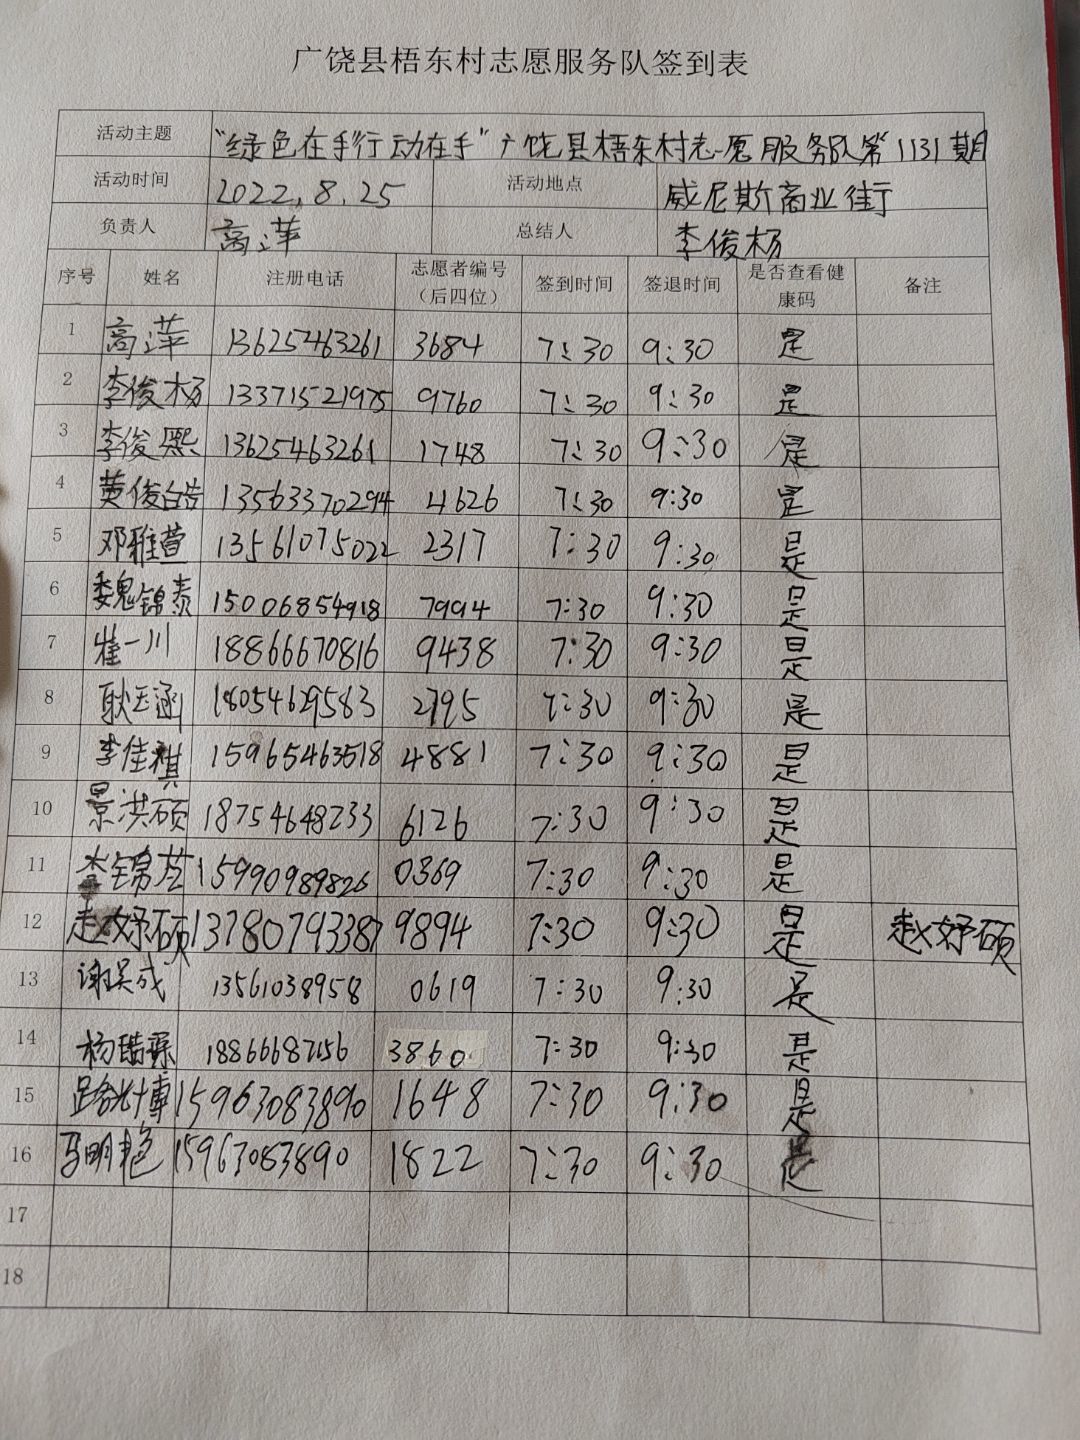 广饶县梧东村志愿服务队签到表
活动主题 “绿色在手行动在手”广饶县梧东村志愿服务队第1131期
活动时间 2022.8.25 活动地点 威尼斯商业街
负责人 高萍 总结人 李俊杨
序号 姓名 注册电话 志愿者编号（后四位） 签到时间 签退时间 是否查看健康码 备注
1 高萍 13625463261 3684 7:30 9:30 是
2 李俊杨 13371521975 9760 7:30 9:30 是
3 李俊熙 13625463261 1748 7:30 9:30 是
4 黄俊皓 13563370294 4626 7:30 9:30 是
5 邓雅萱 13561075022 2317 7:30 9:30 是
6 魏锦泰 15006854918 7994 7:30 9:30 是
7 崔一川 18866670816 9438 7:30 9:30 是
8 耿玉涵 18054629583 2795 7:30 9:30 是
9 李佳祺 15965463518 4881 7:30 9:30 是
10 景洪硕 18754648233 6126 7:30 9:30 是
11 李锦芸 15990989826 0369 7:30 9:30 是
12 赵妤硕 13780793387 9894 7:30 9:30 是 赵妤硕
13 谢昊成 13561038958 0619 7:30 9:30 是
14 杨皓霖 18866687156 3860 7:30 9:30 是
15 路光博 15963083890 1648 7:30 9:30 是
16 马明艳 15963083890 1822 7:30 9:30 是
17
18